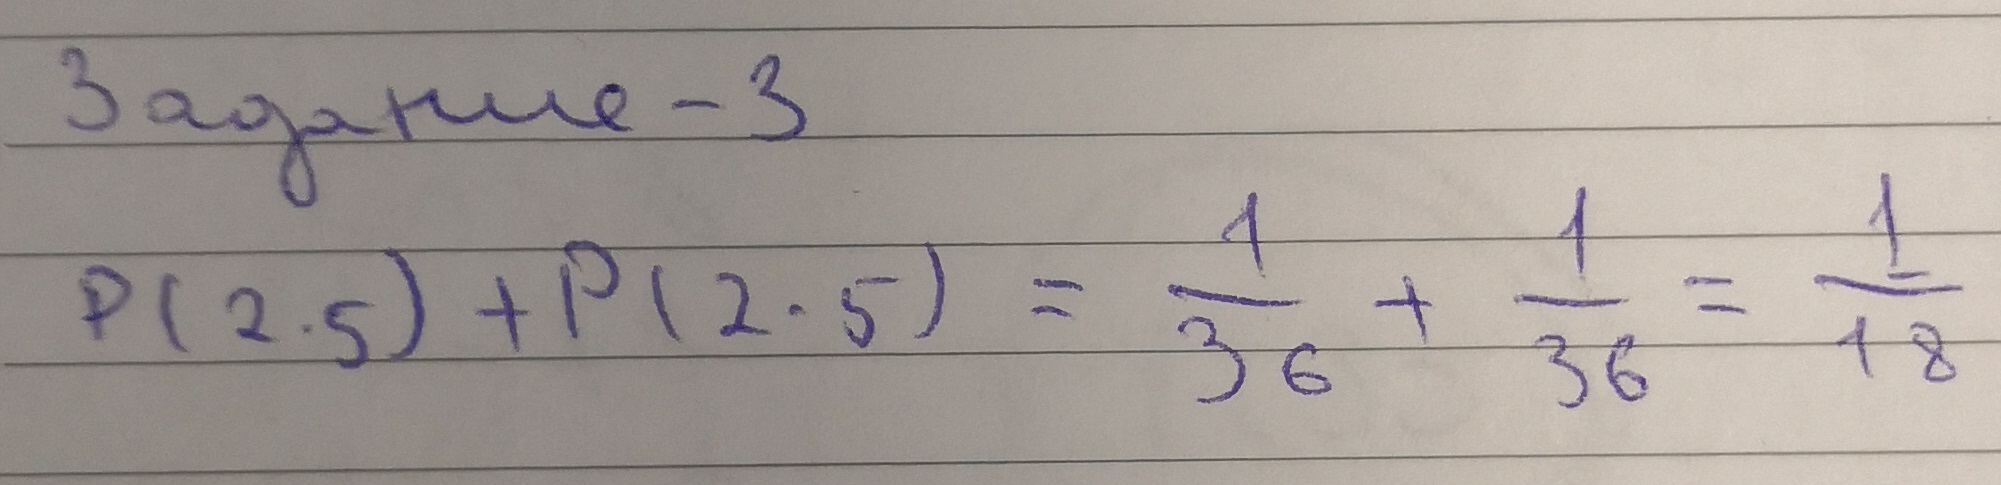 Задание-3
P(2.5)+P(2.5) = 1/36 + 1/36 = 1/18